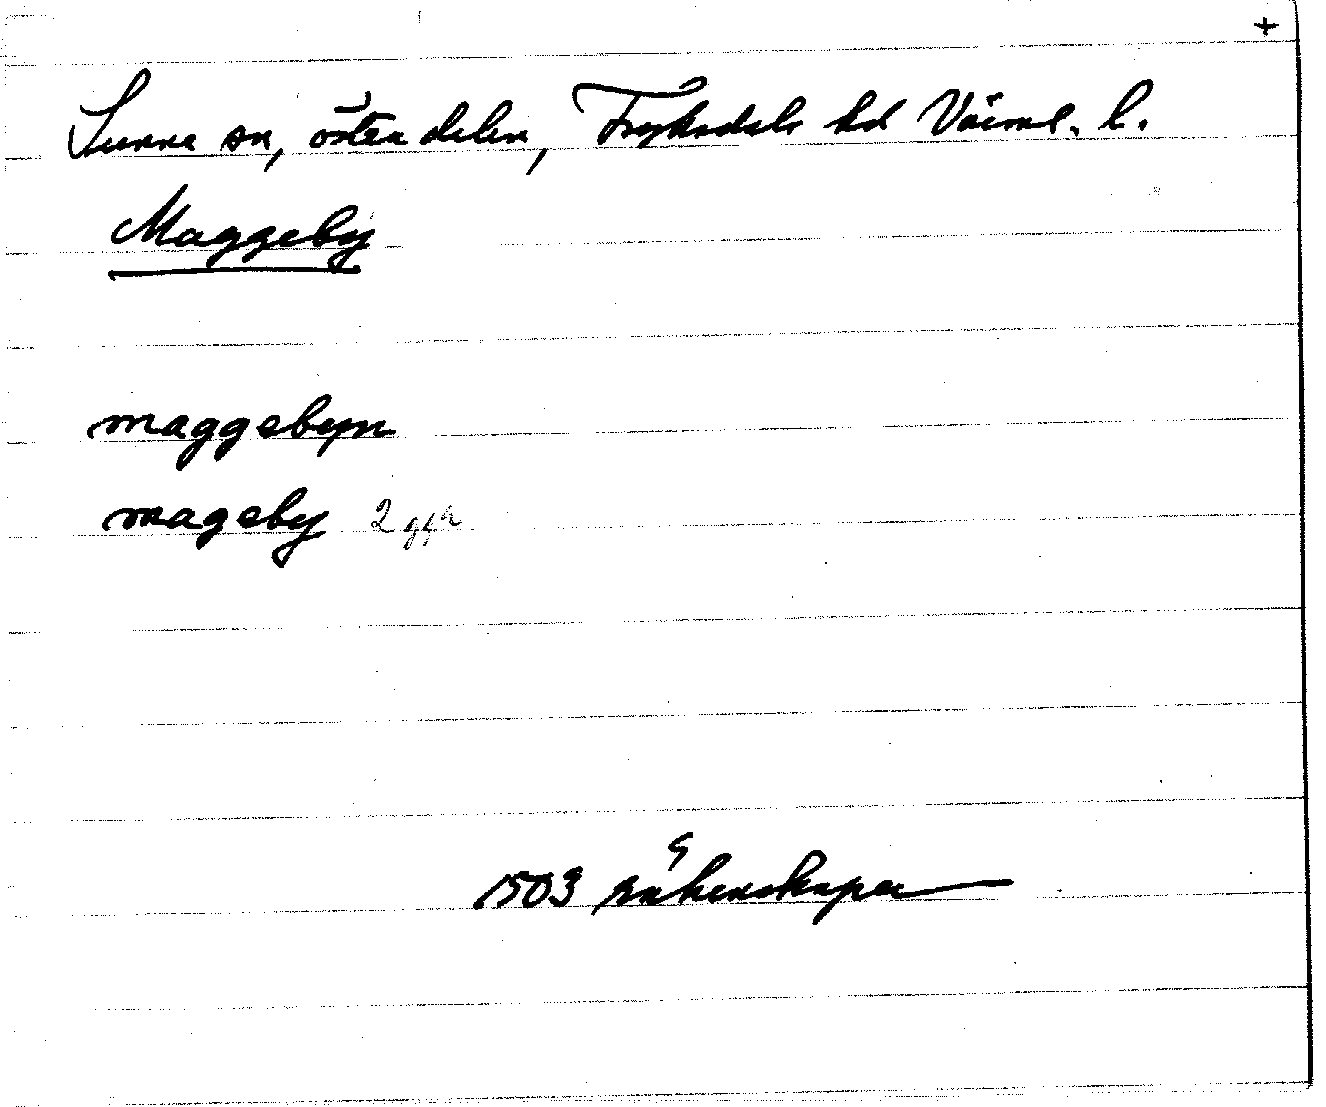 +
Sunna sn, östra delen, Fryksdals hd Värml. l.
Maggeby
maggebyn
mageby 2 ggr
1503 räkenskaper